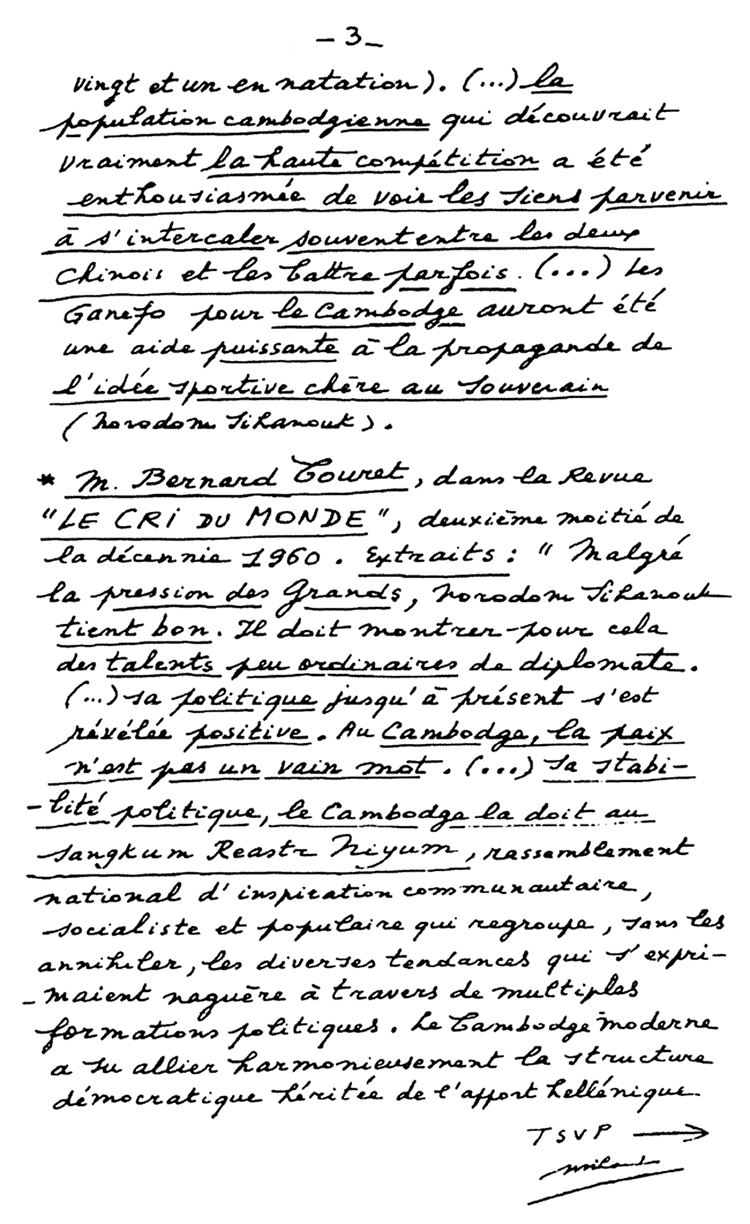 - 3 -
vingt et un en natation). (...) la
population cambodgienne qui découvrait
vraiment la haute compétition a été
enthousiasmée de voir les siens parvenir
à s'intercaler souvent entre les deux
Chinois et les battre parfois. (...) Les
Ganefo pour le Cambodge auront été
une aide puissante à la propagande de
l'idée sportive chère au Souverain
(Norodom Sihanouk).
* M. Bernard Couret, dans la Revue
"LE CRI DU MONDE", deuxième moitié de
la décennie 1960. Extraits : " Malgré
la pression des Grands, Norodom Sihanouk
tient bon. Il doit montrer pour cela
des talents peu ordinaires de diplomate.
(...) sa politique jusqu'à présent s'est
révélée positive. Au Cambodge, la paix
n'est pas un vain mot. (...) Sa stabi-
-lité politique, le Cambodge la doit au
Sangkum Reastr Niyum, rassemblement
national d'inspiration communautaire,
socialiste et populaire qui regroupe, sans les
annihiler, les diverses tendances qui s'expri-
-maient naguère à travers de multiples
formations politiques. Le Cambodge moderne
a su allier harmonieusement la structure
démocratique héritée de l'apport hellénique
TSVP →